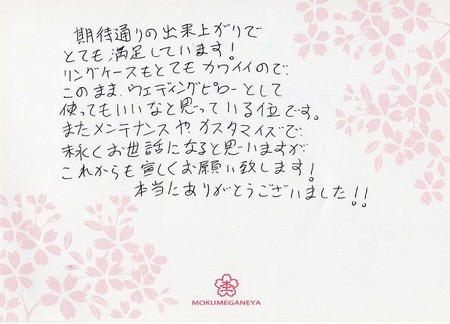 期待通りの出来上がりで
とても満足しています!
リングケースもとてもカワイイので、
このまま、ウェディングピローとして
使ってもいいなと思っている位です。
またメンテナンスや、カスタマイズで、
末永くお世話になると思いますが
これからも宜しくお願い致します!
本当にありがとうございました!!
MOKUMEGANEYA